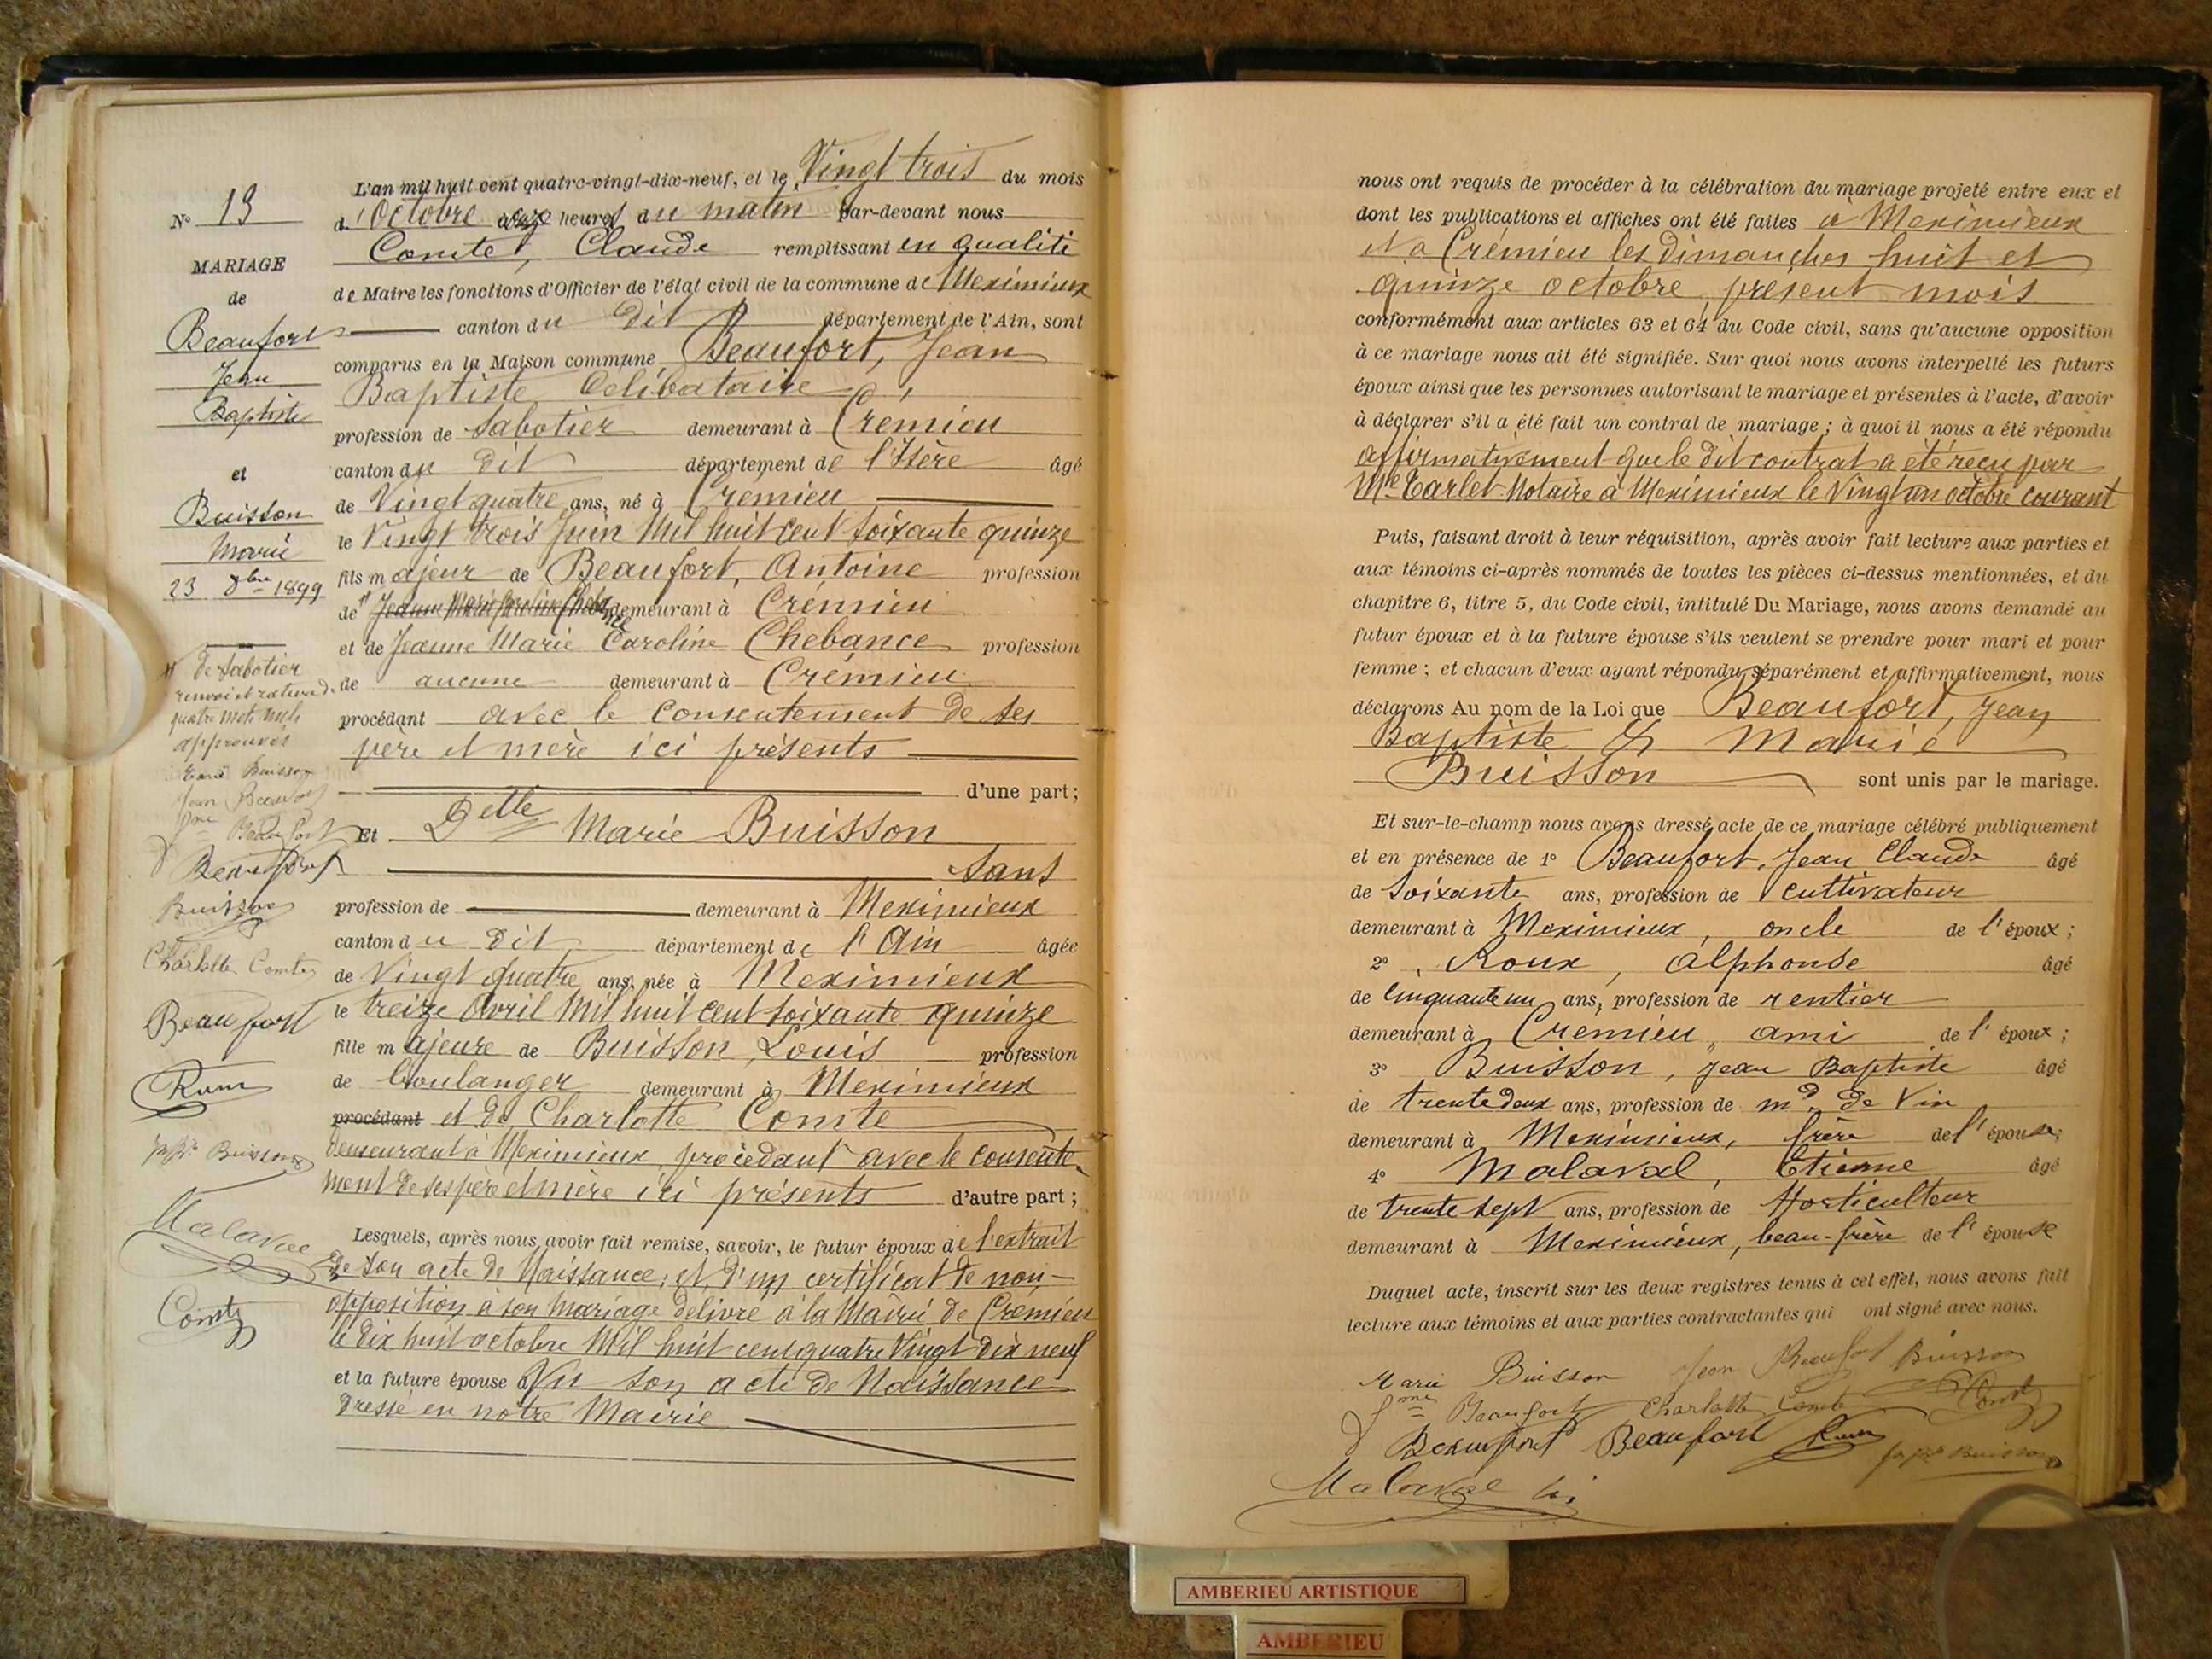 N° 13
MARIAGE
de
Beaufort
Jean
Baptiste
et
Buisson
Marie
23 8bre 1899
de Sabotier
quatre mots nuls
approuvés
Marie Buisson
Jean Beaufort
Beaufort
Beaufort
Buisson
Charlotte Comte
Beaufort
Roux
Buisson
Malaval
Comte
L'an mil huit cent quatre-vingt-dix-neuf, et le Vingt trois du mois
d'Octobre à onze heures du matin par-devant nous
Comte, Claude remplissant en qualité
de Maire les fonctions d'Officier de l'état civil de la commune de Meximieux
canton du dit département de l'Ain, sont
comparus en la Maison commune Beaufort, Jean
Baptiste Célibataire
profession de Sabotier demeurant à Crémieu
canton du dit département de l'Isère âgé
de Vingt quatre ans, né à Crémieu
le Vingt trois Juin Mil huit cent soixante quinze
fils majeur de Beaufort, Antoine profession
de Jeanne Marie Caroline demeurant à Crémieu
et de Jeanne Marie Caroline Chebance profession
de aucune demeurant à Crémieu
procédant avec le consentement de ses
père et mère ici présents
d'une part;
Et Delle Marie Buisson
Sans
profession de demeurant à Meximieux
canton du dit département de l'Ain âgée
de Vingt quatre ans, née à Meximieux
le treize Avril Mil huit cent soixante quinze
fille majeure de Buisson, Louis profession
de boulanger demeurant à Meximieux
procédant et de Charlotte Comte
demeurant à Meximieux, procédant avec le consente-
ment de ses père et mère ici présents d'autre part;
Lesquels, après nous avoir fait remise, savoir, le futur époux de l'extrait
de son acte de Naissance, et d'un certificat de non-
opposition à son mariage délivré à la Mairie de Crémieu
le dix huit octobre Mil huit cent quatre Vingt dix neuf
et la future épouse Vu son acte de Naissance
dressé en notre Mairie
nous ont requis de procéder à la célébration du mariage projeté entre eux et
dont les publications et affiches ont été faites à Meximieux
et à Crémieu les Dimanches huit et
quinze octobre, présent mois
conformément aux articles 63 et 64 du Code civil, sans qu'aucune opposition
à ce mariage nous ait été signifiée. Sur quoi nous avons interpellé les futurs
époux ainsi que les personnes autorisant le mariage et présentes à l'acte, d'avoir
à déclarer s'il a été fait un contrat de mariage; à quoi il nous a été répondu
affirmativement que le dit contrat a été reçu par
Me Tarlet Notaire à Meximieux le Vingt un octobre courant
Puis, faisant droit à leur réquisition, après avoir fait lecture aux parties et
aux témoins ci-après nommés de toutes les pièces ci-dessus mentionnées, et du
chapitre 6, titre 5, du Code civil, intitulé Du Mariage, nous avons demandé au
futur époux et à la future épouse s'ils veulent se prendre pour mari et pour
femme; et chacun d'eux ayant répondu séparément et affirmativement, nous
déclarons Au nom de la Loi que Beaufort, Jean
Baptiste & Marie
Buisson sont unis par le mariage.
Et sur-le-champ nous avons dressé acte de ce mariage célébré publiquement
et en présence de 1° Beaufort, Jean Claude âgé
de soixante ans, profession de cultivateur
demeurant à Meximieux, oncle de l'époux;
2° Roux, Alphonse âgé
de Cinquante un ans, profession de rentier
demeurant à Crémieu, ami de l'époux;
3° Buisson, Jean Baptiste âgé
de trente deux ans, profession de md de Vin
demeurant à Meximieux, frère de l'épouse;
4° Malaval, Etienne âgé
de trente sept ans, profession de Horticulteur
demeurant à Meximieux, beau-frère de l'épouse
Duquel acte, inscrit sur les deux registres tenus à cet effet, nous avons fait
lecture aux témoins et aux parties contractantes qui ont signé avec nous.
Marie Buisson Jean Beaufort Buisson
Beaufort Charlotte Comte Comte
Beaufort Beaufort Roux Buisson
Malaval
AMBERIEU ARTISTIQUE
AMBERIEU